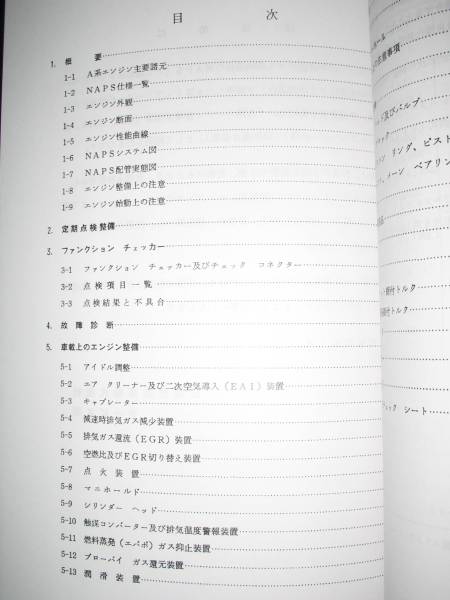 目次
1. 概要
1-1 A系エンジン主要諸元
1-2 NAPS仕様一覧
1-3 エンジン外観
1-4 エンジン断面
1-5 エンジン性能曲線
1-6 NAPSシステム図
1-7 NAPS配管実態図
1-8 エンジン整備上の注意
1-9 エンジン始動上の注意
2. 定期点検整備
3. ファンクション チェッカー
3-1 ファンクション チェッカー及びチェック コネクター
3-2 点検項目一覧
3-3 点検結果と不具合
4. 故障診断
5. 車載上のエンジン整備
5-1 アイドル調整
5-2 エア クリーナー及び二次空気導入(EAI)装置
5-3 キャブレーター
5-4 減速時排気ガス減少装置
5-5 排気ガス還流(EGR)装置
5-6 空燃比及びEGR切り替え装置
5-7 点火装置
5-8 マニホールド
5-9 シリンダー ヘッド
5-10 触媒コンバーター及び排気温度警報装置
5-11 燃料蒸発(エバポ)ガス抑止装置
5-12 ブローバイ ガス還元装置
5-13 潤滑装置
ール
の注意事項
ド及びバルブ
ック
ン リング、ピスト
、メーン ベアリン
付トルク
付トルク
ック シート